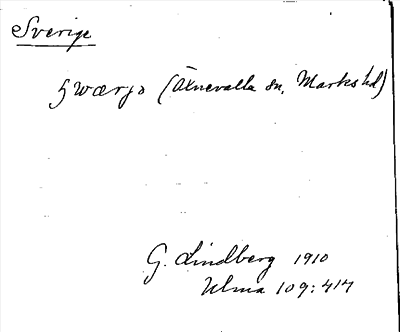 Sverige
Swærjo (Öxnevalla sn, Marks hd)
G. Lindberg 1910
Ulma 109:414